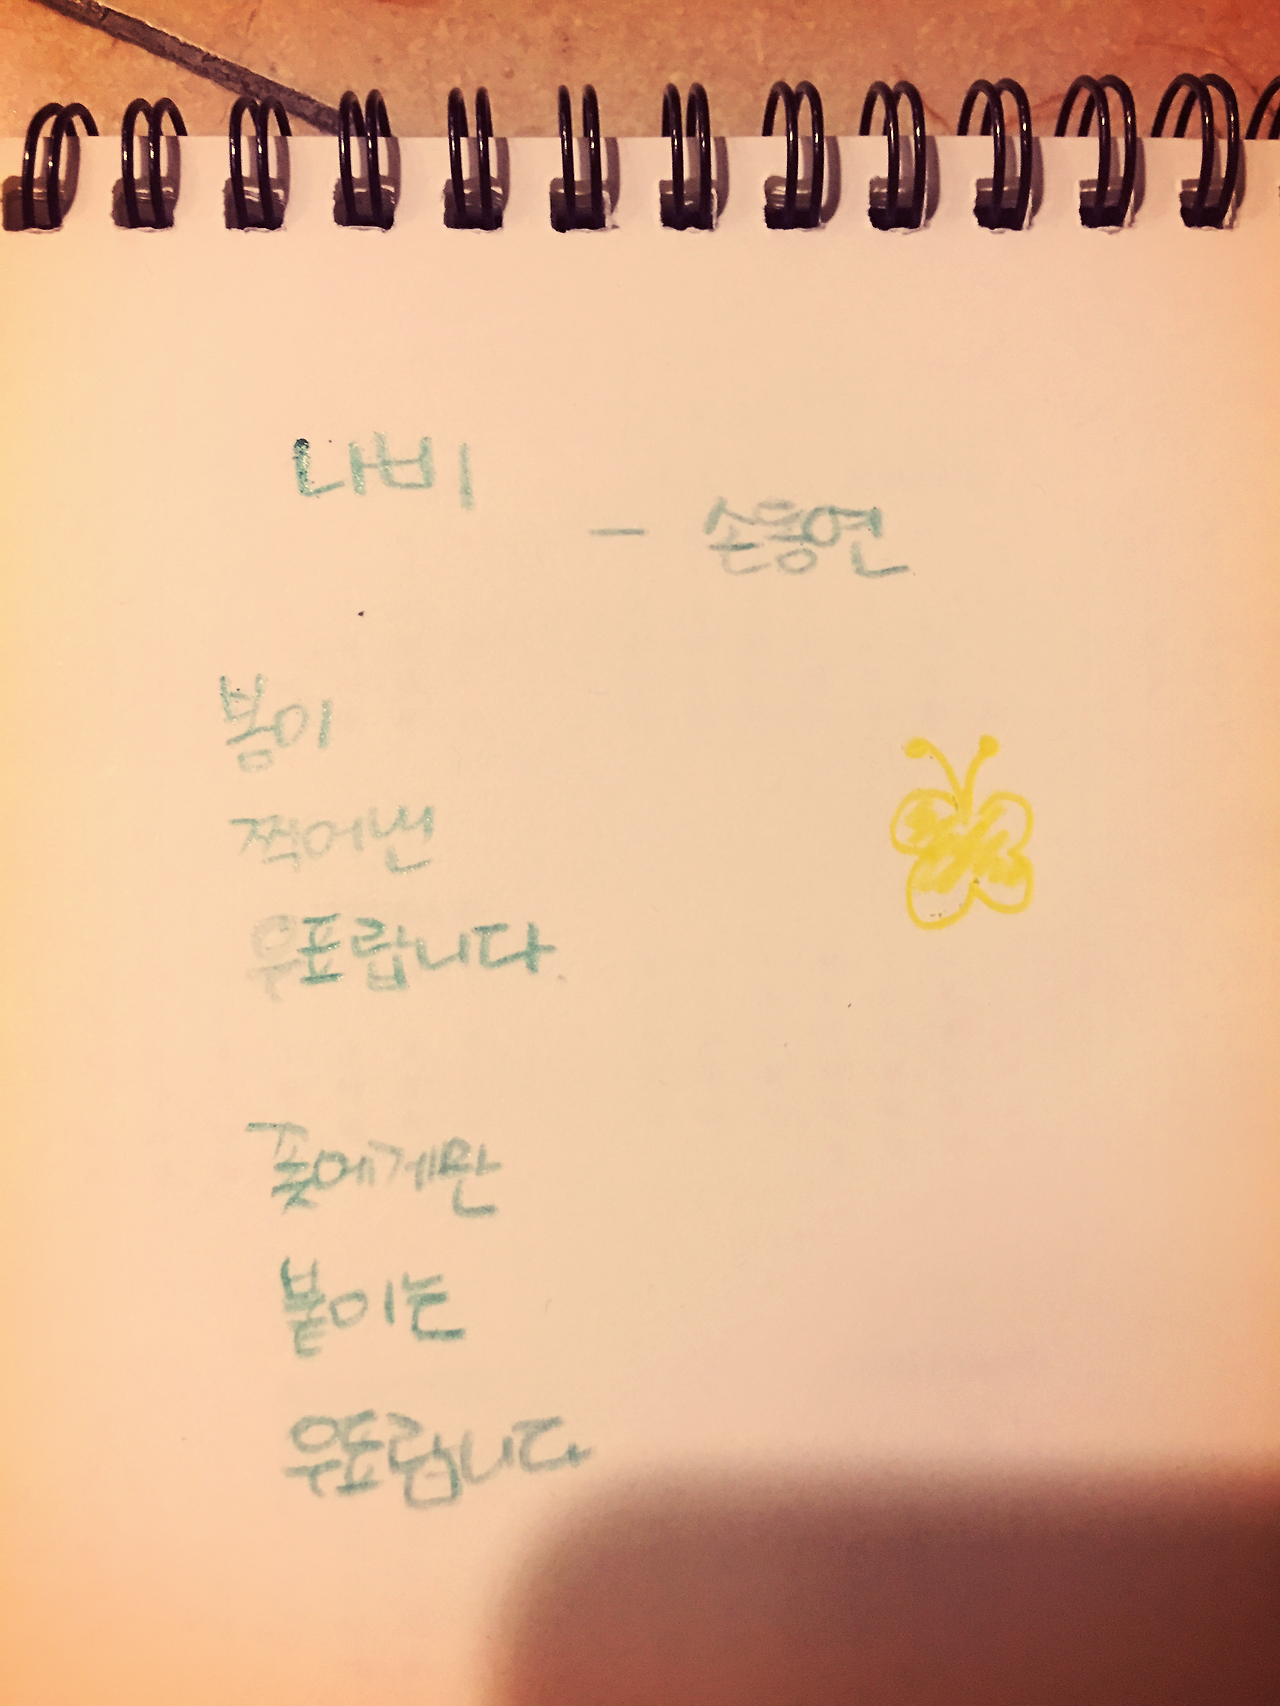 나비
- 손동연
봄이
찍어낸
우표랍니다.
꽃에게만
붙이는
우표랍니다